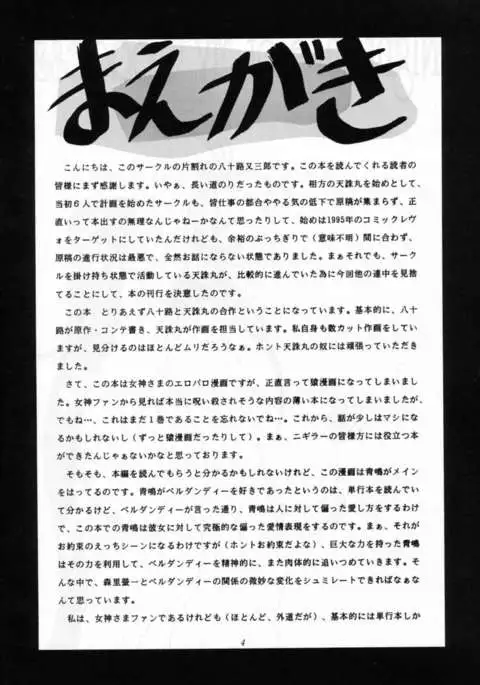 まえがき
こんにちは、このサークルの片割れの八十路又三郎です。この本を読んでくれる読者の
皆様にまず感謝します。いやぁ、長い道のりだったものです。相方の天誅丸を始めとして、
当初6人で計画を始めたサークルも、皆仕事の都合ややる気の低下で原稿が集まらず、正
直いって本出すの無理なんじゃねーかなんて思ったりして、始めは1995年のコミックレヴ
ォをターゲットにしていたんだけれども、余裕のぶっちぎりで(意味不明)間に合わず、
原稿の進行状況は最悪で、全然お話にならない状態でありました。まぁそれでも、サーク
ルを掛け持ち状態で活動している天誅丸が、比較的に進んでいた為に今回他の連中を見捨
てることにして、本の刊行を決意したのです。
この本 とりあえず八十路と天誅丸の合作ということになっています。基本的に、八十
路が原作・コンテ書き、天誅丸が作画を担当しています。私自身も数カット作画をしてい
ますが、見分けるのはほとんどムリだろうなぁ。ホント天誅丸の奴には頑張っていただき
ました。
さて、この本は女神さまのエロパロ漫画ですが、正直言って猿漫画になってしまいまし
た。女神ファンから見れば本当に呪い殺されそうな内容の薄い本になってしまいましたが、
でもね…、これはまだ1巻であることを忘れないでね…。これから、話が少しはマシにな
るかもしれないし(ずっと猿漫画だったりして)。まぁ、ニギラーの皆様方には役立つ本
ができたんじゃぁないかなと思っております。
そもそも、本編を読んでもらうと分かるかもしれないけれど、この漫画は青嶋がメイン
をはってるのです。青嶋がベルダンディーを好きであったというのは、単行本を読んでい
て分かるけど、ベルダンディーが言った通り、青嶋は人に対して偏った愛し方をするわけ
で、この本での青嶋は彼女に対して究極的な偏った愛情表現をするのです。まぁ、それが
お約束のえっちシーンになるわけですが(ホントお約束だよな)、巨大な力を持った青嶋
はその力を利用して、ベルダンディーを精神的に、また肉体的に追いつめていきます。そ
んな中で、森里螢一とベルダンディーの関係の微妙な変化をシュミレートできればなぁな
んて思っています。
私は、女神さまファンであるけれども(ほとんど、外道だが)、基本的には単行本しか
4